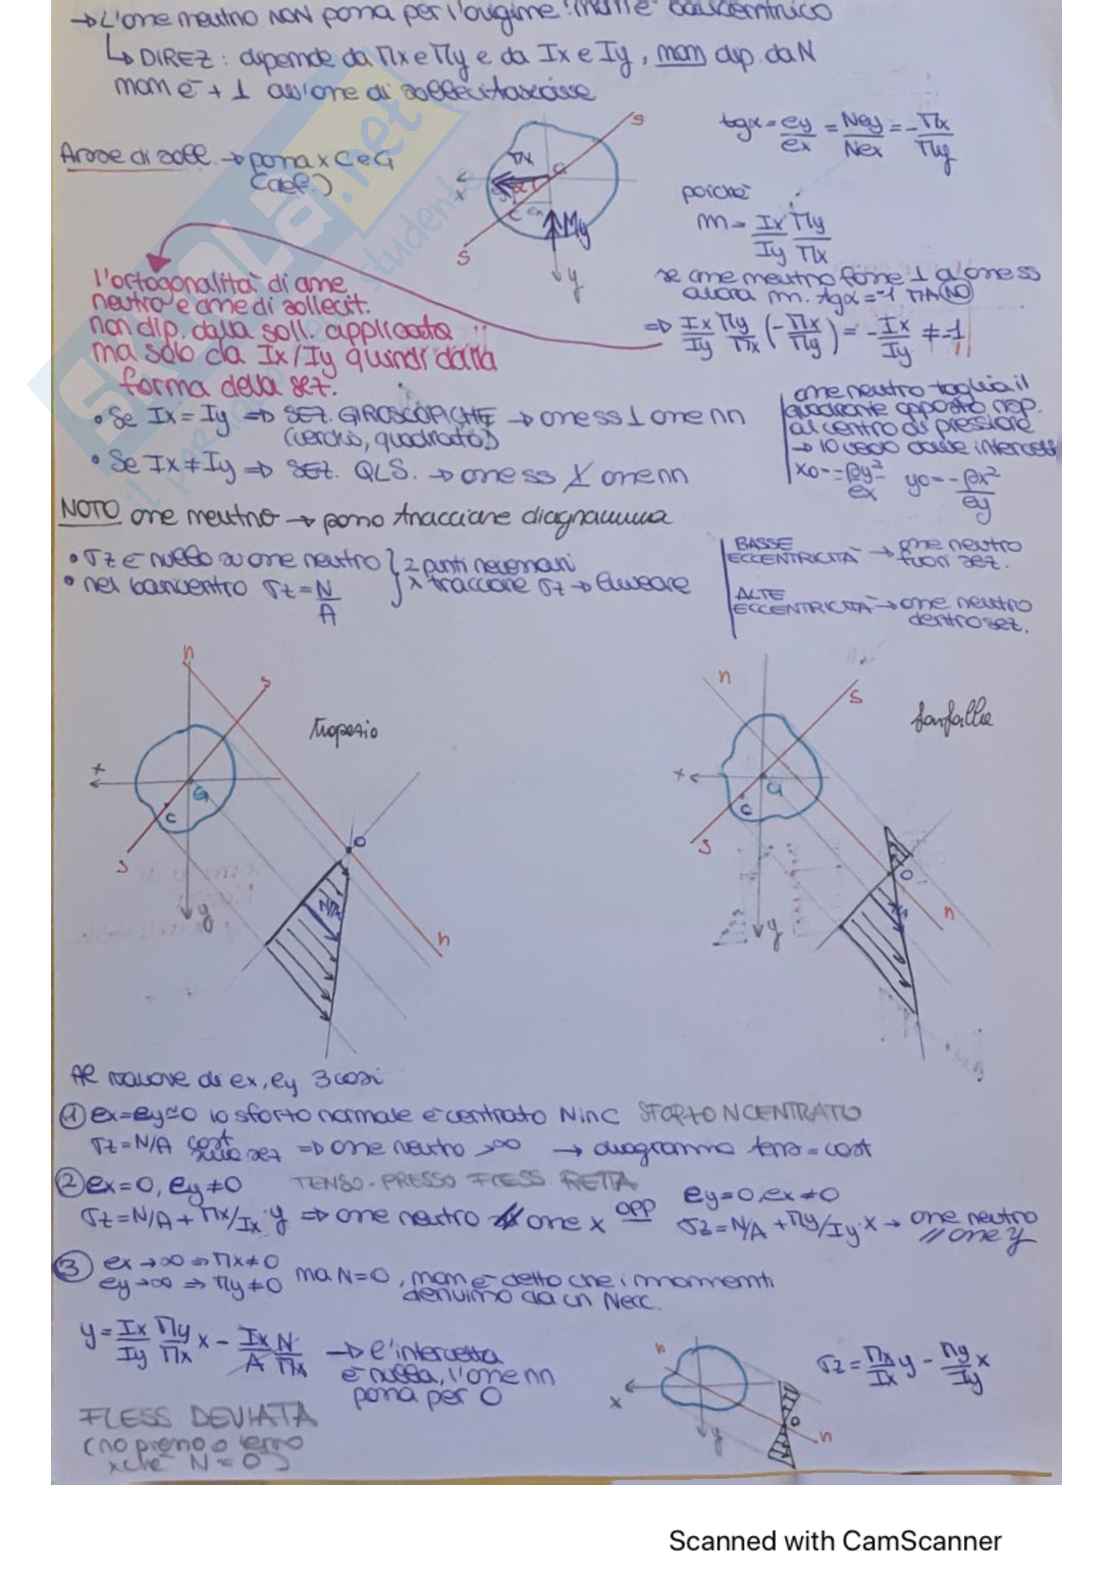 → L'asse neutro NON passa per l'origine: non è baricentrico
↳ DIREZ: dipende da Mx e My e da Ix e Iy, non dip. da N
non è + ⊥ all'asse di sollecitazione
Asse di soll. → passa x C e G
(def.)
tgα = ey/ex = Ney/Nex = - Mx/My
poiché
m = Ix/Iy My/Mx
se asse neutro fosse ⊥ a asse ss
allora m. tgα = -1 MA NO
⇒ Ix/Iy My/Mx (-Mx/My) = - Ix/Iy ≠ -1
Mx
G
x
α
C
My
s
s
y
l'ortogonalità di asse
neutro e asse di sollecit.
non dip. dalla soll. applicata
ma solo da Ix/Iy quindi dalla
forma della sez.
• Se Ix = Iy ⇒ SEZ. GIROSCOPICHE → asse ss ⊥ asse nn
(cerchio, quadrato)
• Se Ix ≠ Iy ⇒ SEZ. QLS. → asse ss ⊥̸ asse nn
asse neutro taglia il
quadrante opposto risp.
al centro di pressione
→ lo vedo dalle intercett
x0 = -ρy²/ex y0 = -ρx²/ey
NOTO asse neutro → posso tracciare diagramma
• σz è nullo su asse neutro } 2 punti necessari
• nel baricentro σz = N/A } x tracciare σz → lineare
BASSE ECCENTRICITÀ → asse neutro fuori sez.
ALTE ECCENTRICITÀ → asse neutro dentro sez.
n
s
trapezio
x
G
C
s
y
O
N/A
n
n
s
farfalla
x
G
C
s
y
O
n
Al variare di ex, ey 3 casi
① ex = ey = 0 lo sforzo normale è centrato N in C SFORZO N CENTRATO
σz = N/A cost sulla sez ⇒ asse neutro → ∞ → diagramma tens = cost
② ex = 0, ey ≠ 0 TENSO-PRESSO FLESS RETTA
σz = N/A + Mx/Ix · y ⇒ asse neutro // asse x opp
ey = 0, ex ≠ 0
σz = N/A + My/Iy · x → asse neutro // asse y
③ ex → ∞ ⇒ Mx ≠ 0
ey → ∞ ⇒ My ≠ 0 ma N = 0, non è detto che i momenti
derivino da un N ecc.
y = Ix/Iy My/Mx x - Ix/A N/Mx → l'intercetta
è nulla, l'asse nn
passa per O
n
x
y
O
n
σz = Mx/Ix y - My/Iy x
FLESS DEVIATA
(no presso o tenso
xché N = 0)
Scanned with CamScanner